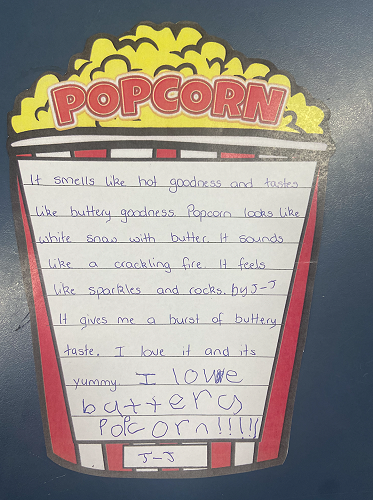 POPCORN
It smells like hot goodness and tastes
like buttery goodness. Popcorn looks like
white snow with butter. It sounds
like a crackling fire. It feels
like sparkles and rocks. by J-J
It gives me a burst of buttery
taste. I love it and its
yummy. I lowe
battery
PoPcorn!!!!!
J-J